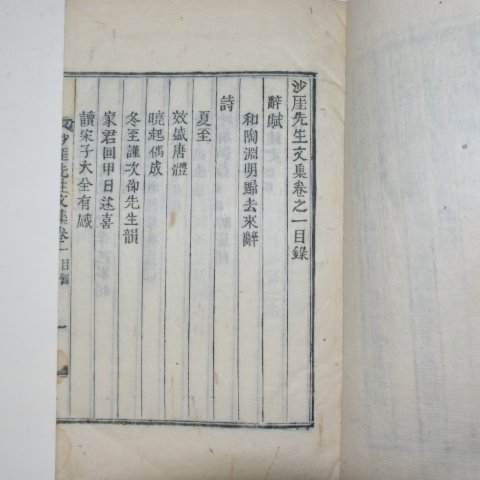 沙厓先生文集卷之一目錄
辭賦
和陶淵明歸去來辭
詩
夏至
效盛唐體
曉起偶成
冬至謹次邵先生韻
家君回甲日述喜
讀宋子大全有感
沙厓先生文集卷一 目錄